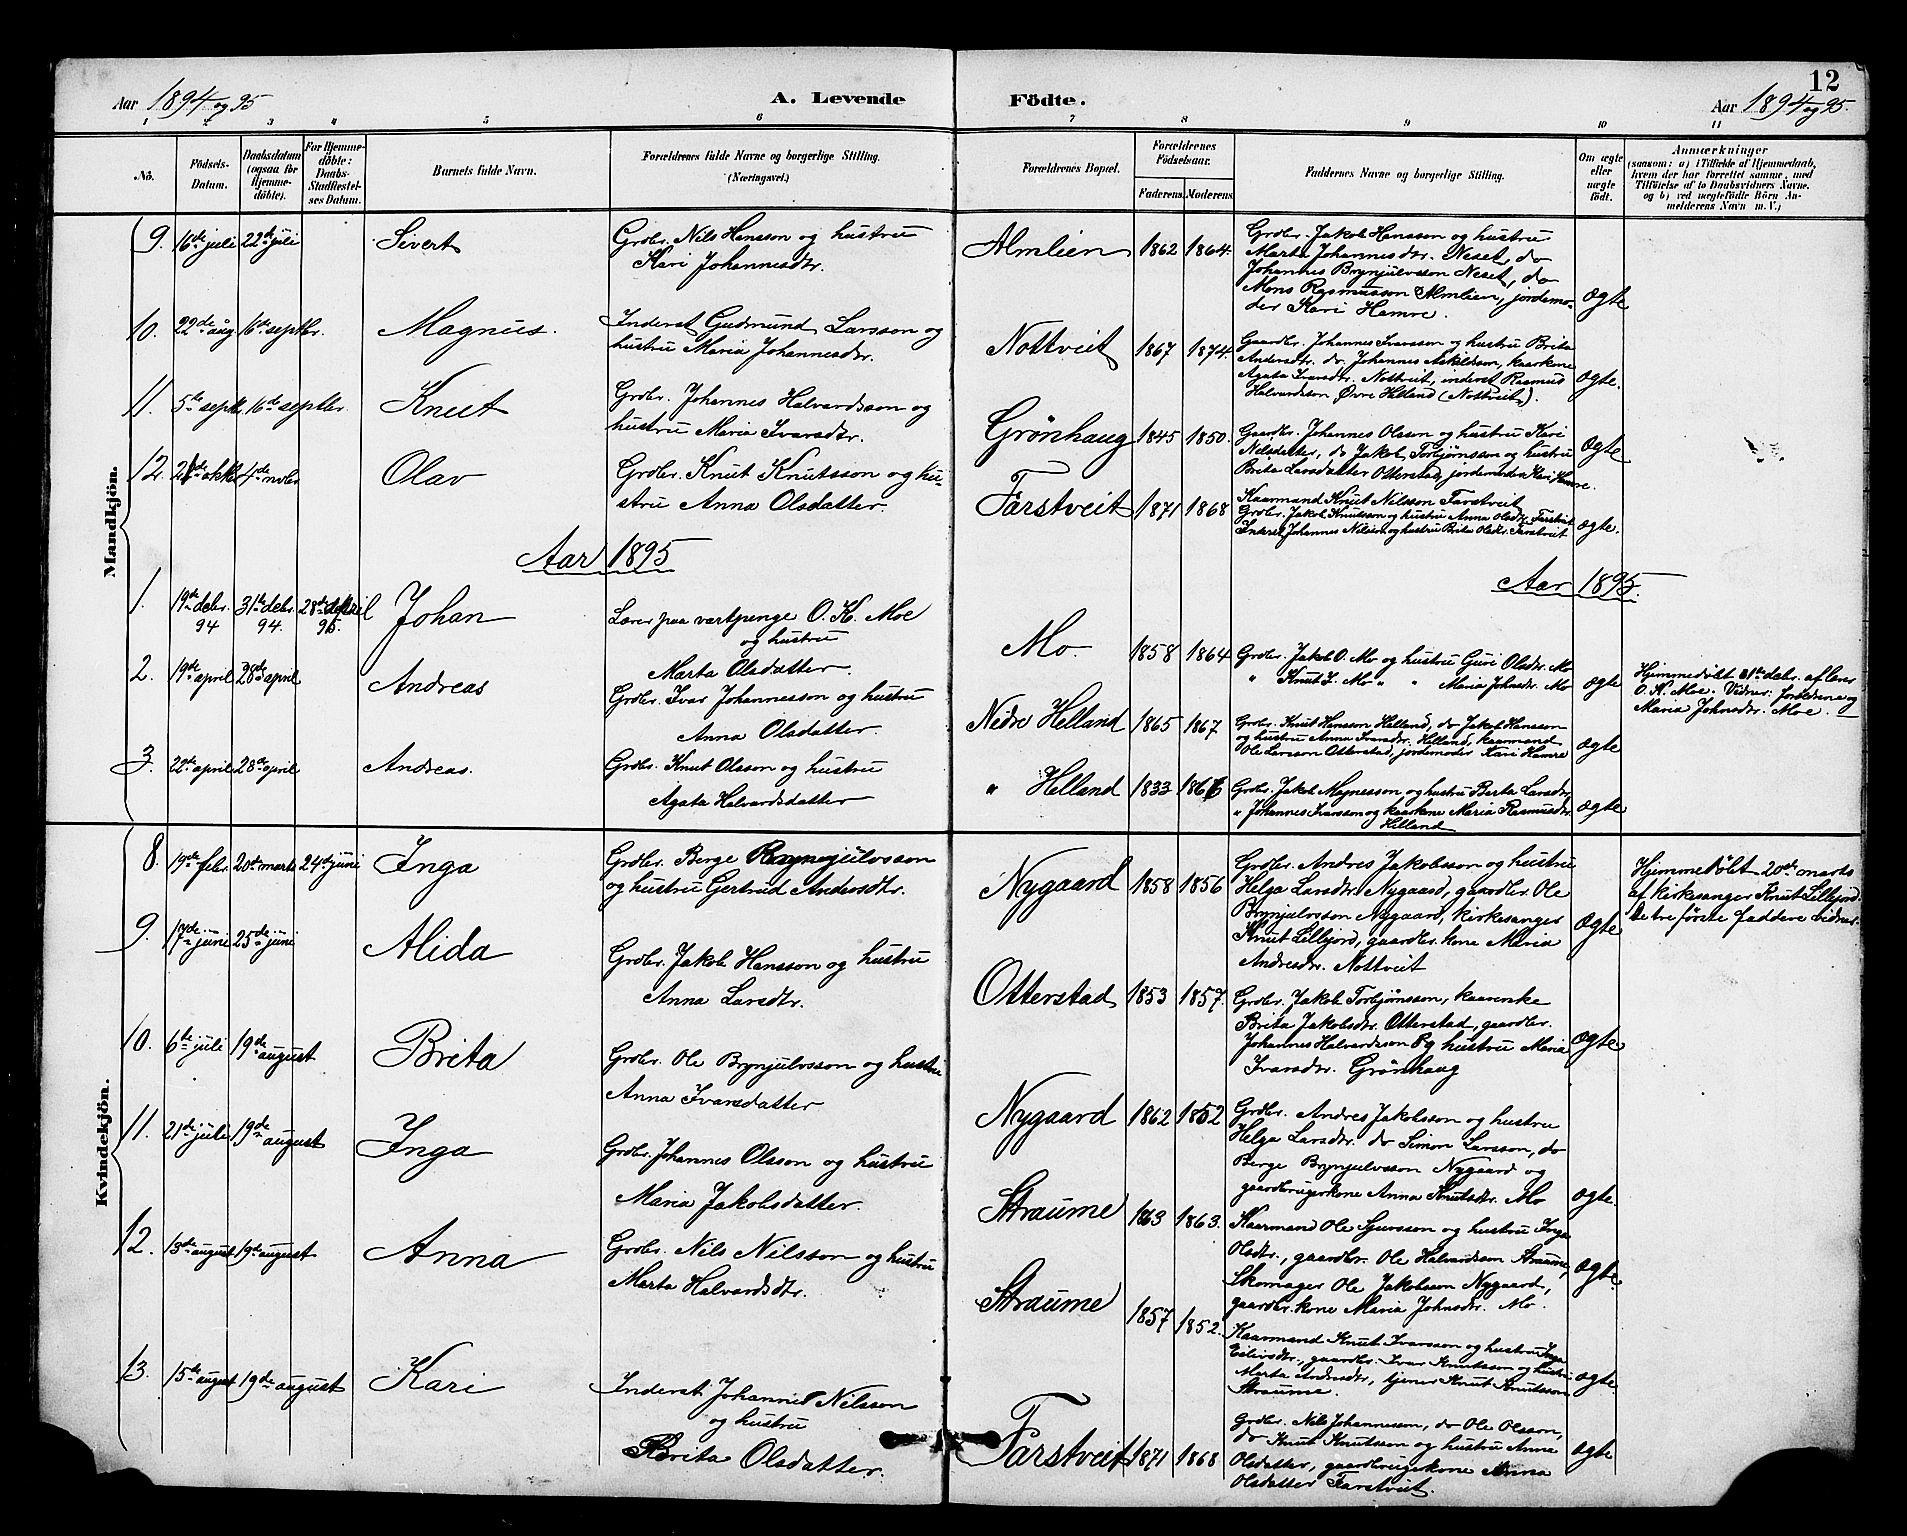 12
Aar 1894 og 95
A. Levende
Födte.
Aar 1894 og 95.
1 2 3 4 5 6 7 8 9 10 11
No.
Födsels-
Datum.
Daabsdatum
(ogsaa for
Hjemme-
döbte).
For Hjemme-
döbte:
Daabs-
Stadfæstel-
ses Datum.
Barnets fulde Navn.
Forældrenes fulde Navne og borgerlige Stilling.
(Næringsvei.)
Forældrenes Bopæl.
Forældrenes
Födselsaar.
Faderens Moderens
Faddernes Navne og borgerlige Stilling.
Om ægte
eller
uægte
födt.
Anmærkninger
(saasom: a) i Tilfælde af Hjemmedaab,
hvem der har forrettet samme, med
Tilföielse af to Daabsvidners Navne.
og b) ved uægtefödte Börn An-
melderens Navn m. V.)
Mandkjön.
9. 16de juli 22de juli Sivert
Grdbr. Nils Hansson og hustru
Kari Johannesdtr.
Almlien 1862 1864.
Grdbr. Jakob Hansson og hustru
Marta Johannesdtr. Neset, do
Johannes Brynjulvsson Neset, do
Mons Rasmusson Almlien, jordemo-
der Kari Hamre.
ægte
10. 22de aug. 16de septbr. Magnus.
Inderst Gudmund Larsson og
hustru Maria Johannesdtr.
Nottveit 1867 1874.
Gaardbr. Johannes Ivarsson og hustru Brita
Andersdtr. do Johannes Askildson, kaarkone
Agata Ivarsdtr. Nottveit, inderst Rasmus
Halvardsson Øvre Helland (Nottveit).
ægte.
11. 5te septbr. 16de septbr. Knut
Grdbr. Johannes Halvardsson og
hustru Maria Ivarsdtr.
Grönhaug 1845 1850.
Gaardbr. Johannes Olsson og hustru Kari
Nilsdatter, do Jakob Torbjönsson og hustru
Brita Larsdatter Otterstad, jordemoder Kari Hamre.
ægte
12. oktb 4de novbr Olav
Grdbr. Knut Knutsson og hu-
stru Anna Olsdatter.
Farstveit 1871 1868
Kaarmand Knut Nilsson Farstveit
Grdbr. Jakob Knutsson og hustru Anna Olsdtr. Farstveit
Inderst Johannes Nilssen og hustru Brita Olsdtr. Farstveit
ægte.
Aar 1895
Aar 1895.
1. 19de debr. 94 31te debr. 94. 28de april 95. Johan
Lærer paa vartpenge O. K. Moe
og hustru
Marta Olsdatter.
Mo. 1858 1864
Grdbr. Jakob O. Mo og hustru Guri Olsdtr. Mo
" Knut I. Mo " " Maria Johnsdtr. Mo
ægte
Hjemmedöbt 31te debr. af lærer
O. K. Moe. Vidner: forældrene og
Maria Johnsdtr. Moe.
2. 19de april 28de april Andreas
Grdbr. Ivar Johannesson og hustru
Anna Olsdatter.
Nedre Helland 1865 1867
Grdbr. Knut Hansson Helland, do Jakob Hansson
og hustru Anna Ivarsdtr. Helland, kaarmand
Ole Larsson Otterstad, jordemoder Kari Hamre
ægte
3. 22de april 28de april Andreas.
Grdbr. Knut Olsson og hustru
Agata Halvardsdatter
" Helland 1833 1866
Grdbr. Jakob Magnesson og hustru Berta Larsdtr.
" Johannes Ivarsson og kaarkone Maria Rasmusdtr.
Helland
ægte
Kvindekjön.
8. 19de febr. 20de marts 24de juni Inga
Grdbr. Berge Brynjulvsson
og hustru Gertrud Andersdtr.
Nygaard 1858 1856
Grdbr. Andres Jakobsson og hustru
Helga Larsdtr. Nygaard, gaardbr. Ole
Brynjulvsson Nygaard, kirkesanger
Knut Lilljord, gaardbr. kone Maria
Andresdtr. Nottveit
ægte
Hjemmedöbt 20de marts
af kirkesanger Knut Lilljord.
De tre förste faddere vidner.
9. 17de juni 25de juni Alida
Grdbr. Jakob Hansson og hustru
Anna Larsdtr.
Otterstad 1853 1857.
Grdbr. Jakob Torbjönsson, kaarenke
Brita Jakobsdtr. Otterstad, gaardbr.
Johannes Halvardsson og hustru Maria
Ivarsdtr. Grönhaug
ægte
10. 6te juli 19de august Brita
Grdbr. Ole Brynjulvsson og hustru
Anna Ivarsdatter
Nygaard 1862 1852
Grdbr. Andres Jakobsson og hustru
Helga Larsdtr. do Simon Larsson, do
Berge Brynjulvsson Nygaard og
gaardbrugerkone Anna Knutsdtr. Mo
ægte.
11. 21de juli 19de august Inga
Grdbr. Johannes Olsson og hustru
Maria Jakobsdatter.
Straume 1863 1863.
Kaarmand Ole Sjursson og hustru Inga
Olsdtr., gaardbr. Ole Halvardson Straume,
Skomager Ole Jakobson Nygaard,
gaardbr. kone Maria Johnsdtr. Mo.
ægte.
12. 13de august 19de august Anna
Grdbr. Nils Nilsson og hustru
Marta Halvardsdtr.
Straume 1857 1852.
Kaarmand Knut Ivarsson og hustru Inga
Eilivsdtr., gaardbr. Ivar Knutsson og hustru
Marta Andersdtr, tjener Knut Knutsson
Straume.
ægte
13. 15de august 19de august Kari
Inderst Johannes Nilsson
og hustru
Brita Olsdatter.
Farstveit 1871 1868
Grdbr. Nils Johannesson, do Ole Olsson,
do Knut Knutsson og hustru Anna
Olsdatter, gaardbrugerkone Anna
Olsdatter Farstveit.
ægte